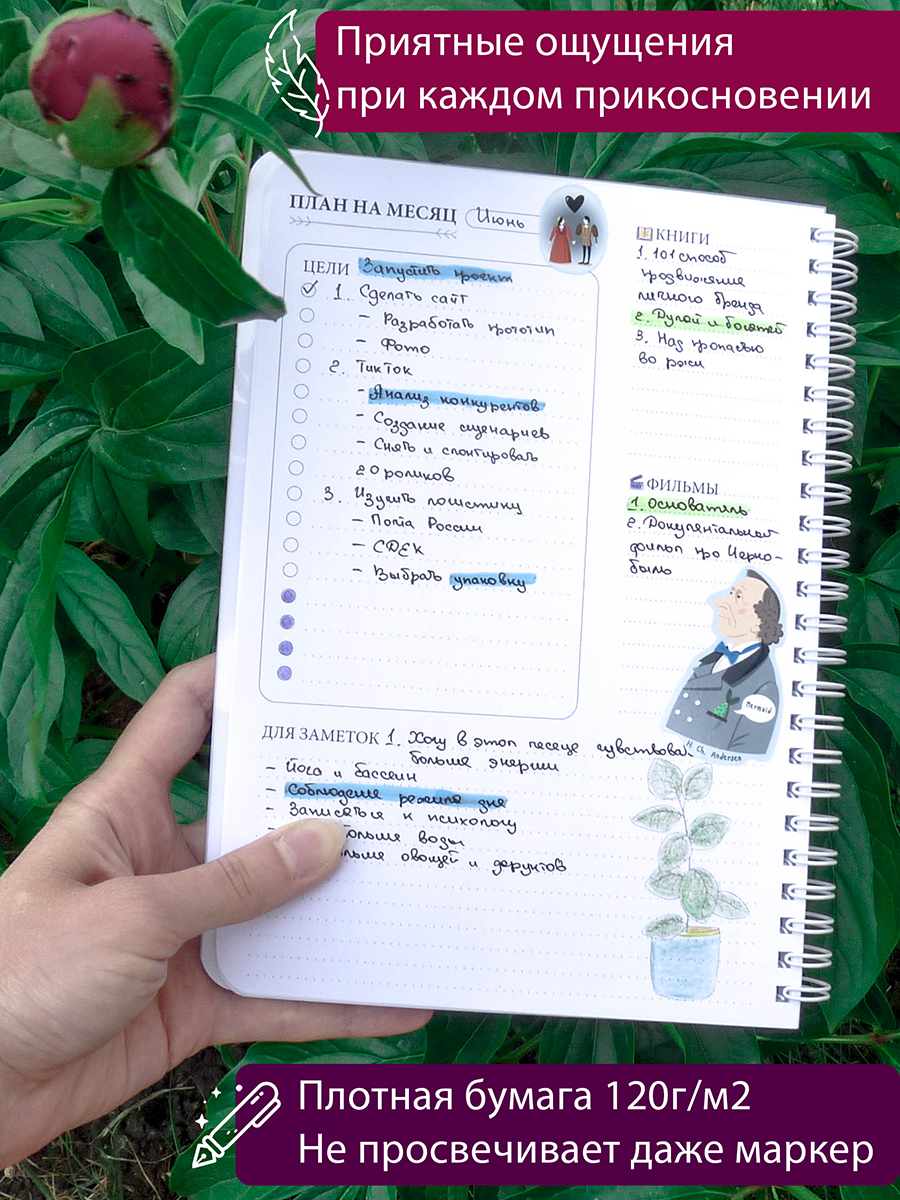 Приятные ощущения
при каждом прикосновении
ПЛАН НА МЕСЯЦ Июнь
ЦЕЛИ Запустить проект
1. Сделать сайт
– Разработать прототип
– Фото
2. ТикТок
– Анализ конкурентов
– Создание сценариев
– Снять и смонтировать
20 роликов
3. Изучить логистику
– Почта России
– СДЕК
– Выбрать упаковку
КНИГИ
1. 101 способ
продвижения
личного бренда
2. Думай и богатей
3. Над пропастью
во ржи
ФИЛЬМЫ
1. Основатель
2. Документальный
фильм про Черно-
быль
Mermaid
H. Ch. Andersen
ДЛЯ ЗАМЕТОК 1. Хочу в этом месяце чувствова
больше энергии
– Йога и бассейн
– Соблюдение режима дня
– Записаться к психологу
больше воды
ольше овощей и фруктов
Плотная бумага 120г/м2
Не просвечивает даже маркер